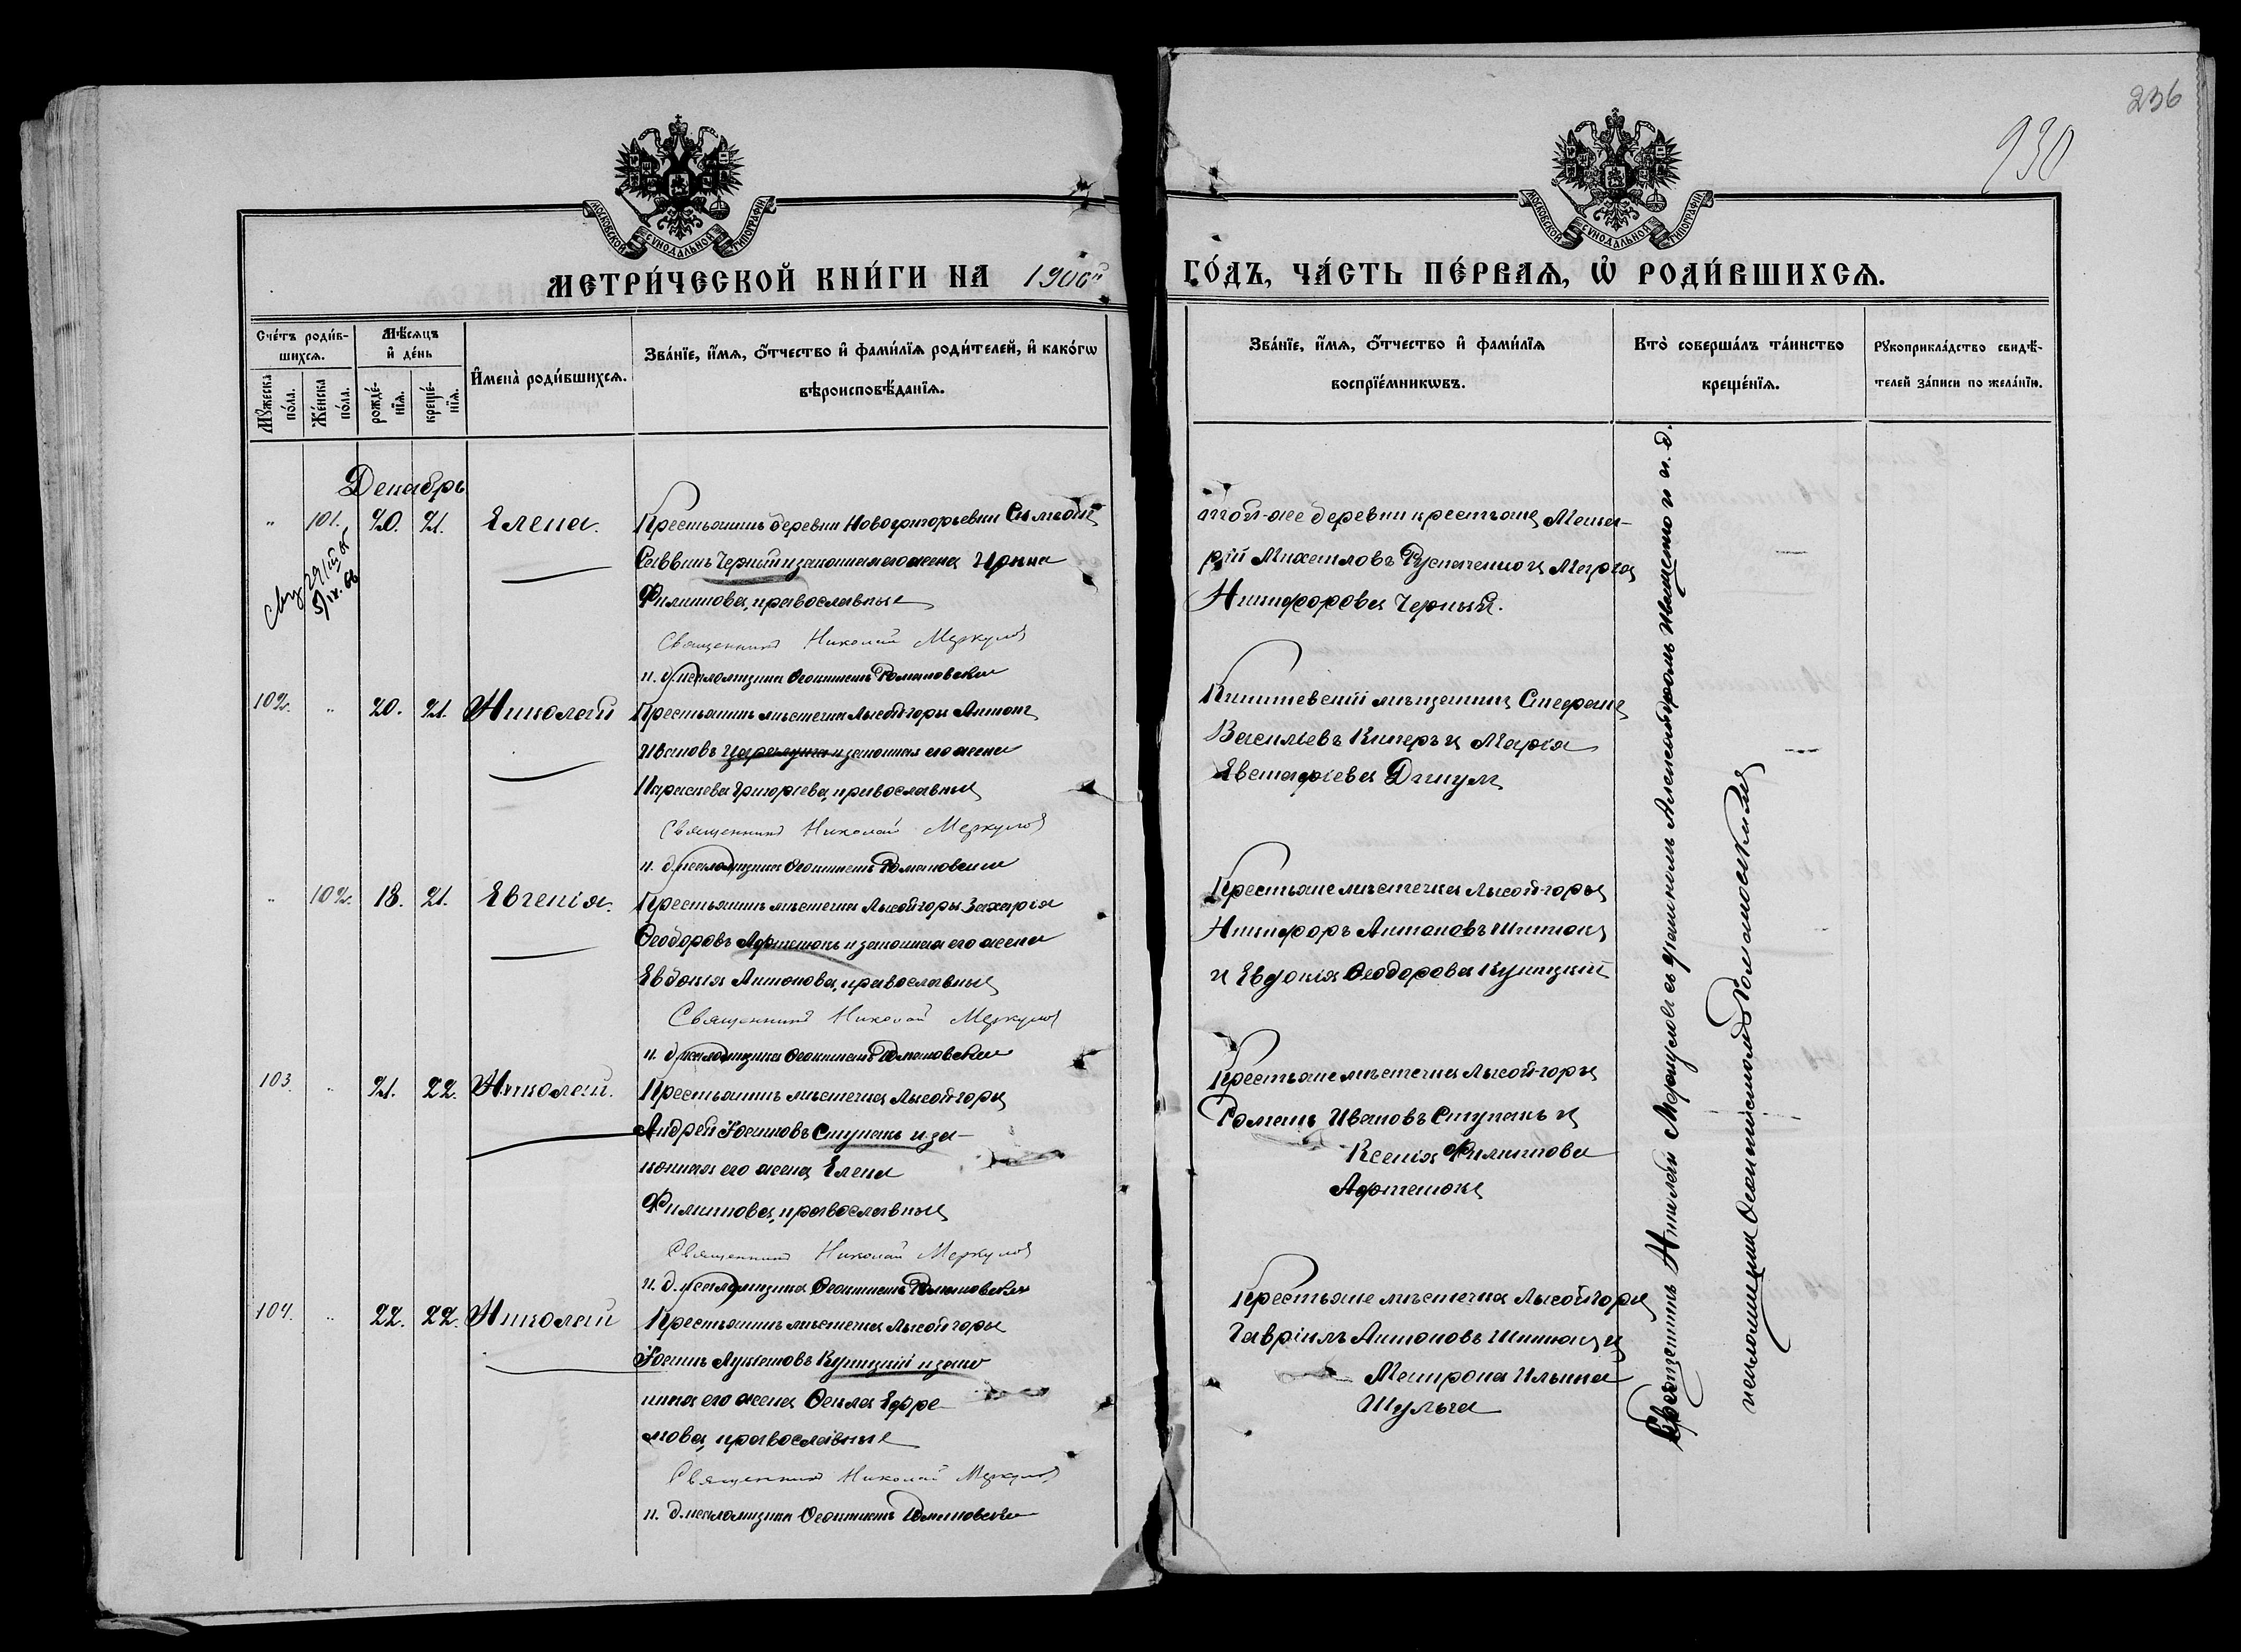 236
930
МОСКОВСКОЙ СѴНОДАЛЬНОЙ ТИПОГРАФІИ.
МОСКОВСКОЙ СѴНОДАЛЬНОЙ ТИПОГРАФІИ.
МЕТРИ́ЧЕСКОЙ КНИ́ГИ НА 1906й
ГО́ДЪ, ЧА́СТЬ ПЕ́РВАѦ, Ѽ РОДИ́ВШИХСѦ.
Сче́тъ роди́в-
шихсѧ.
Мꙋ́жеска по́ла.
Же́нска по́ла.
Мѣ́сѧцъ
и҆ де́нь
рожде́-
нїѧ.
креще́-
нїѧ.
И҆мена̀ роди́вшихсѧ.
Зва́нїе, и҆́мѧ, ѻ҆́тчество и҆ фами́лїѧ роди́телей, и҆ како́гѡ
вѣроисповѣ́данїѧ.
Зва́нїе, и҆́мѧ, ѻ҆́тчество и҆ фами́лїѧ
воспрїе́мникѡвъ.
Кто̀ соверша́лъ та́инство
креще́нїѧ.
Рꙋкоприкла́дство свидѣ́-
телей за́писи по жела́нїю.
Декабрь
" 101. 20. 21. Елена.
Крестьянинъ деревни Новогригорьевки
Саввинъ Черный и законная его жена Ирина
Филиппова, православные
Священникъ Николай Меркулов
и. д. псаломщика Феоктистъ Романовскій
той-же деревни крестьяне
Михаиловъ и Марія
Никифорова Черный.
102. " 20. 21. Николай
Крестьянинъ мѣстечка Лысой-горы Антонъ
Ивановъ и законная его жена
Параскева Григорьева, православные
Священникъ Николай Меркулов
и. д. псаломщика Феоктистъ Романовскій
мѣщанинъ Стефанъ
Васильевъ Киперъ и Марія
Евстафіева
" 102. 18. 21. Евгенія.
Крестьянинъ мѣстечка Лысой-горы Захарія
Феодоровъ Афтенюкъ и законная его жена
Евдокія Антонова, православные
Священникъ Николай Меркулов
и. д. псаломщика Феоктистъ Романовскій
Крестьяне мѣстечка Лысой-горы
Никифоръ Антоновъ
и Евдокія Феодорова Куницкій
103. " 21. 22. Николай.
Крестьянинъ мѣстечка Лысой-горы
Андрей Іоанновъ Ступакъ и за-
конная его жена Елена
Филиппова, православные
Священникъ Николай Меркулов
и. д. псаломщика Феоктистъ Романовскій
Крестьяне мѣстечка Лысой-горы
Романъ Ивановъ Ступакъ и
Ксенія Филиппова
Афтенюкъ
104. " 22. 22. Николай
Крестьянинъ мѣстечка Лысой-горы
Іоаннъ Куницкій и зако
нная его жена Фекла Ефре
мова, православные
Священникъ Николай Меркулов
и. д. псаломщика Феоктистъ Романовскій
Крестьяне мѣстечка Лысой-горы
Гавріилъ Антоновъ и
Матрона Ильина
Шульга
Священникъ Николай Меркуловъ и. д.
псаломщика Феоктистомъ Романовскимъ